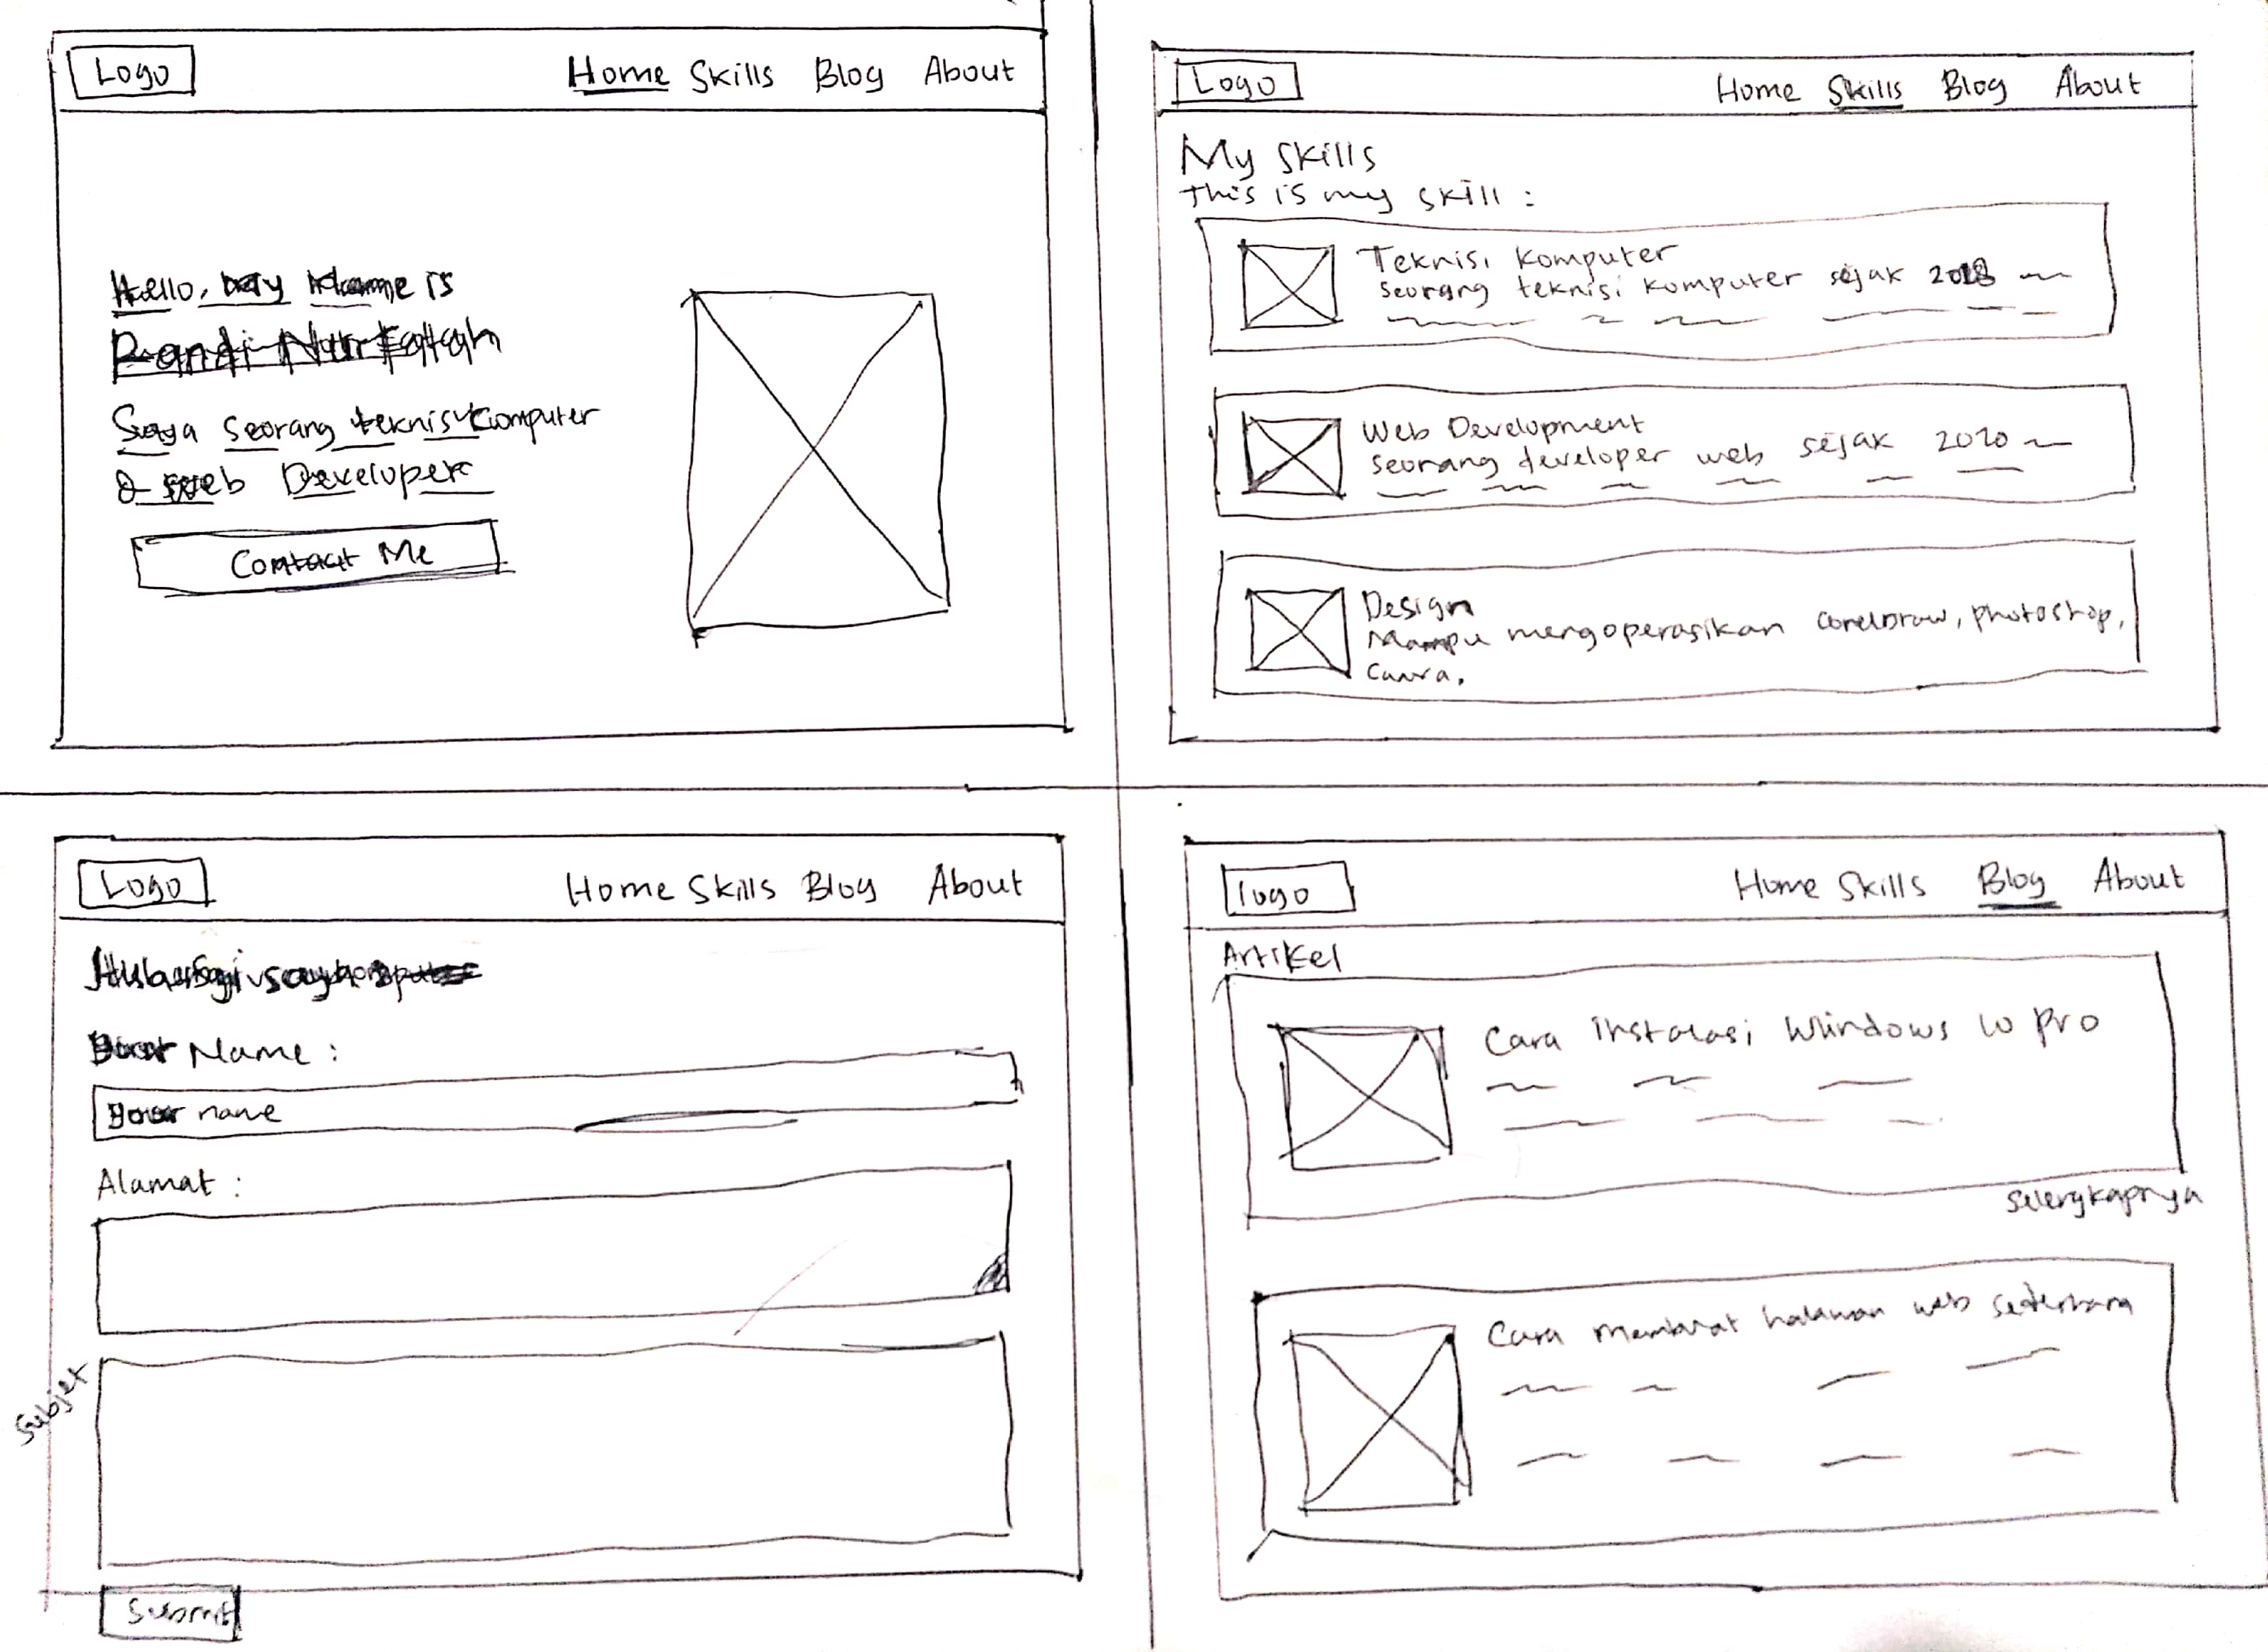 Logo
Home Skills Blog About
Hello, my Name is
Pandi Nur Fattah
Saya Seorang teknisi Komputer
& web Developer
Contact Me
Logo
Home Skills Blog About
My Skills
This is my skill :
Teknisi Komputer
Seorang teknisi komputer sejak 2018
Web Development
Seorang developer web sejak 2020
Design
Mampu mengoperasikan CorelDraw, photoshop,
Canva.
Logo
Home Skills Blog About
Name :
name
Alamat :
Subjet
Submit
logo
Home Skills Blog About
Artikel
Cara instalasi Windows 10 pro
Selengkapnya
Cara membuat halaman web sederhana